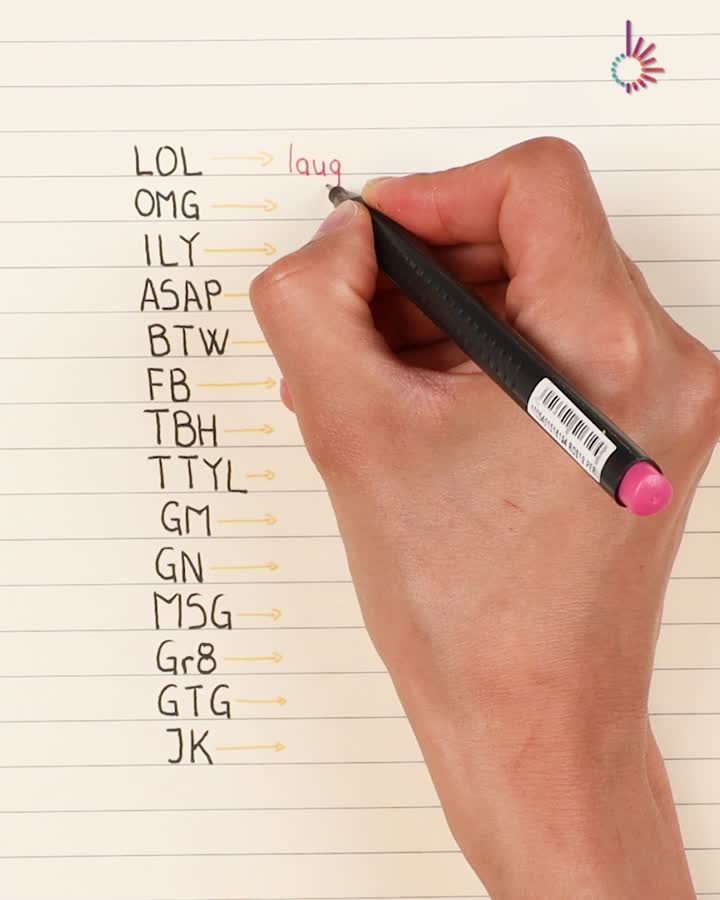 LOL → laug
OMG →
ILY →
ASAP
BTW
FB →
TBH →
TTYL →
GM →
GN →
MSG →
Gr8 →
GTG →
JK →